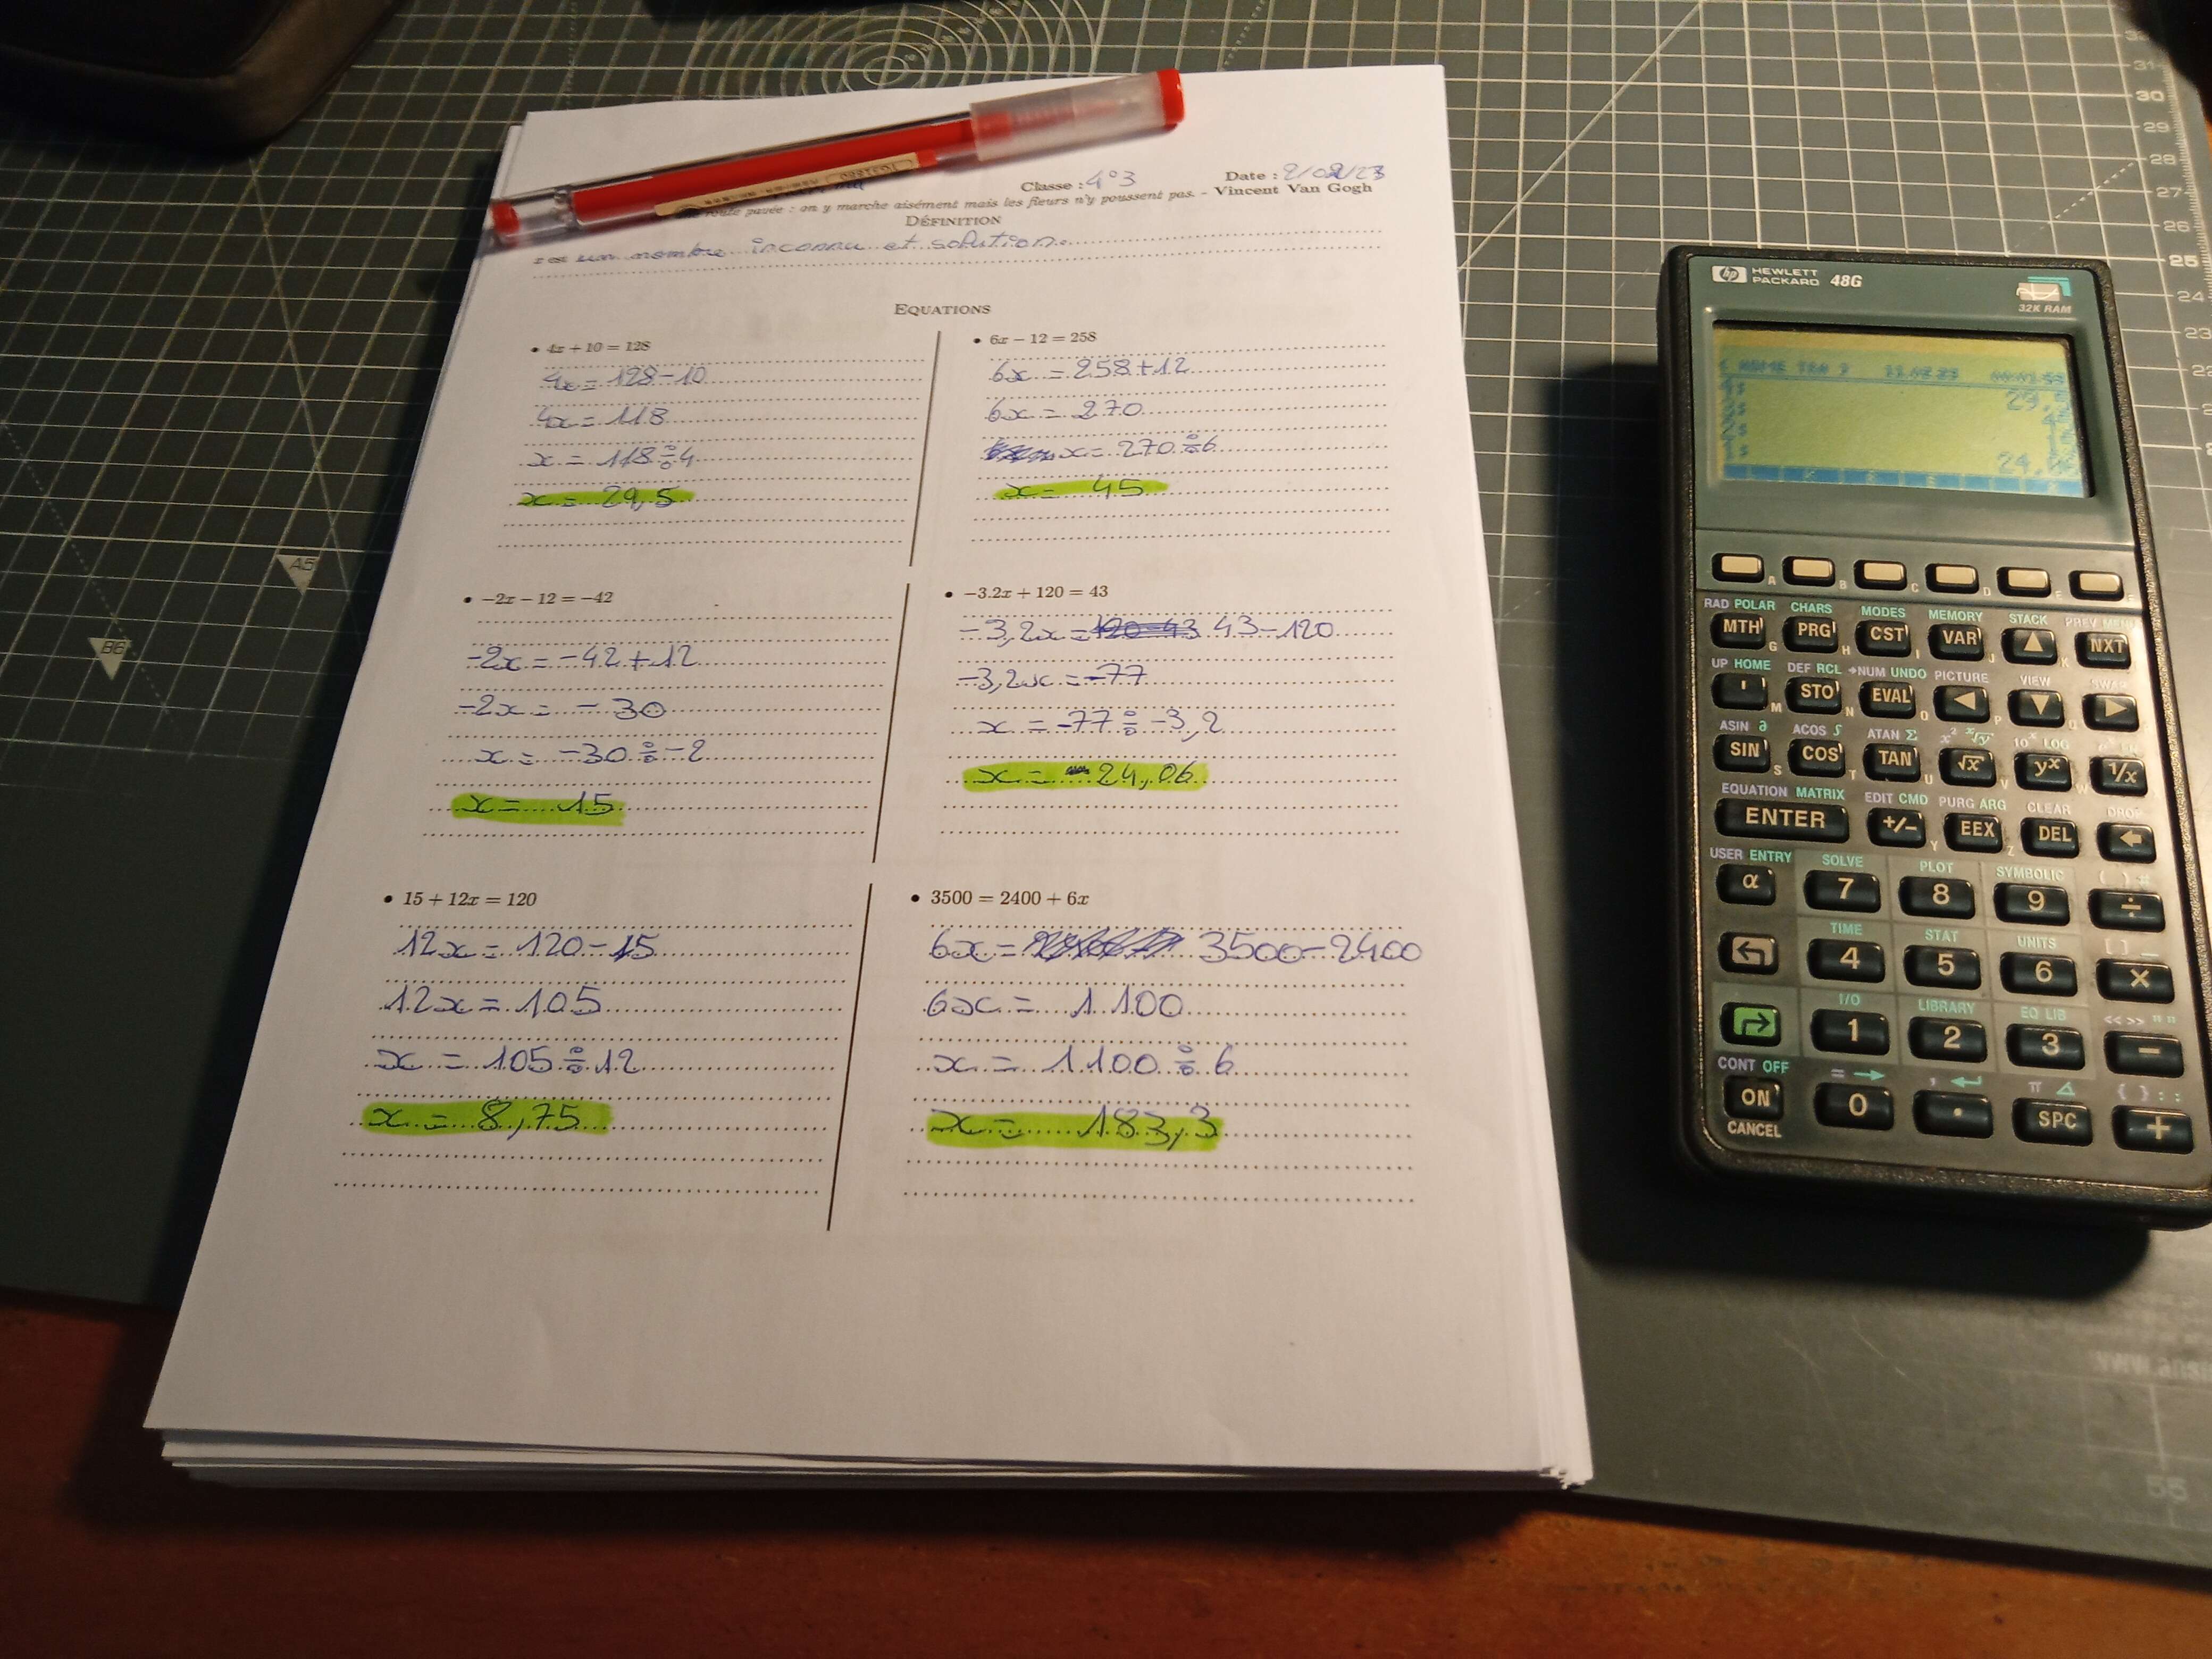 Classe : 4°3 Date :
route pavée : on y marche aisément mais les fleurs n'y poussent pas. - Vincent Van Gogh
DÉFINITION
x est un nombre inconnu et solution.
EQUATIONS
• 4x + 10 = 128
4x = 128-10
4x = 118
x = 118÷4
x = 29,5
• 6x − 12 = 258
6x = 258+12
6x = 270
x = 270÷6
x = 45
• −2x − 12 = −42
-2x = -42+12
-2x = -30
x = -30÷-2
x = 15
• −3.2x + 120 = 43
-3,2x = 120-43 43-120
-3,2x = -77
x = -77÷-3,2
x = 24,06
• 15 + 12x = 120
12x = 120-15
12x = 105
x = 105÷12
x = 8,75
• 3500 = 2400 + 6x
6x = 3500-2400
6x = 1100
x = 1100÷6
x = 183,3
hp HEWLETT PACKARD 48G
32K RAM
A B C D E F
RAD POLAR CHARS MODES MEMORY STACK PREV MENU
MTH PRG CST VAR ▲ NXT
G H I J K L
UP HOME DEF RCL →NUM UNDO PICTURE VIEW SWAP
' STO EVAL ◀ ▼ ▶
M N O P
ASIN ∂ ACOS ∫ ATAN Σ x² ˣ√y 10ˣ LOG
SIN COS TAN √x yˣ 1/x
S T U V W
EQUATION MATRIX EDIT CMD PURG ARG CLEAR DROP
ENTER +/- EEX DEL
Y Z
USER ENTRY SOLVE PLOT SYMBOLIC ( ) #
α 7 8 9 ÷
TIME STAT UNITS [ ] _
4 5 6 ×
I/O LIBRARY EQ LIB << >> " "
1 2 3 −
CONT OFF = → , ↵ π ∠ { } : :
ON 0 . SPC +
CANCEL
A5
B6
31
30
29
28
27
26
25
24
23
22
55